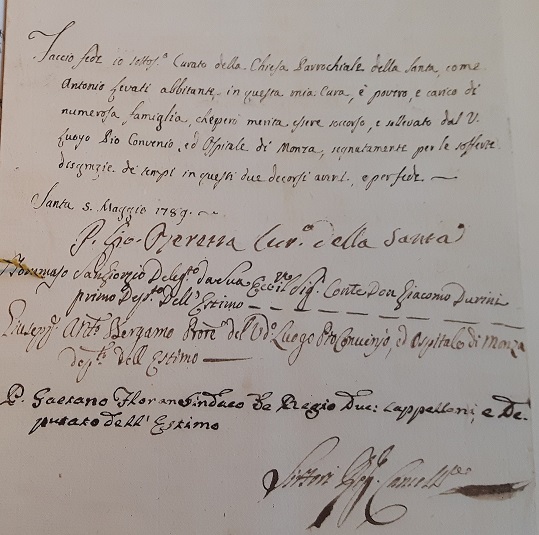 Faccio fede io sottos.º Curato della Chiesa Parrochiale della Santa, come
Antonio Levati abbitante in questa mia Cura, è povero, e carico di
numerosa famiglia, cheperò merita essere socorso, e sollevato dal V.
Luogo Pio Convenio, ed Ospitale di Monza, segnatamente per le sofferte
disgrazie de tempi in questi due decorsi anni. e per fede. —
Santa 5. Maggio 1789. —
P. Gio. Cur.º della Santa
Tommaso Sangiorgio Deleg.º da Sua Ecc. Sig. Conte Don Giacomo Durini
primo Dep.º Dell'Estimo
Giusepp. Ant.º Bergamo del Vdº. Luogo Pio Convenio, ed Ospitale di Monza
dep.º dell Estimo
P. Gaetano Sindaco De Regio Duc: Cappelloni, e De-
putato dell'Estimo
Sirtori Cancell